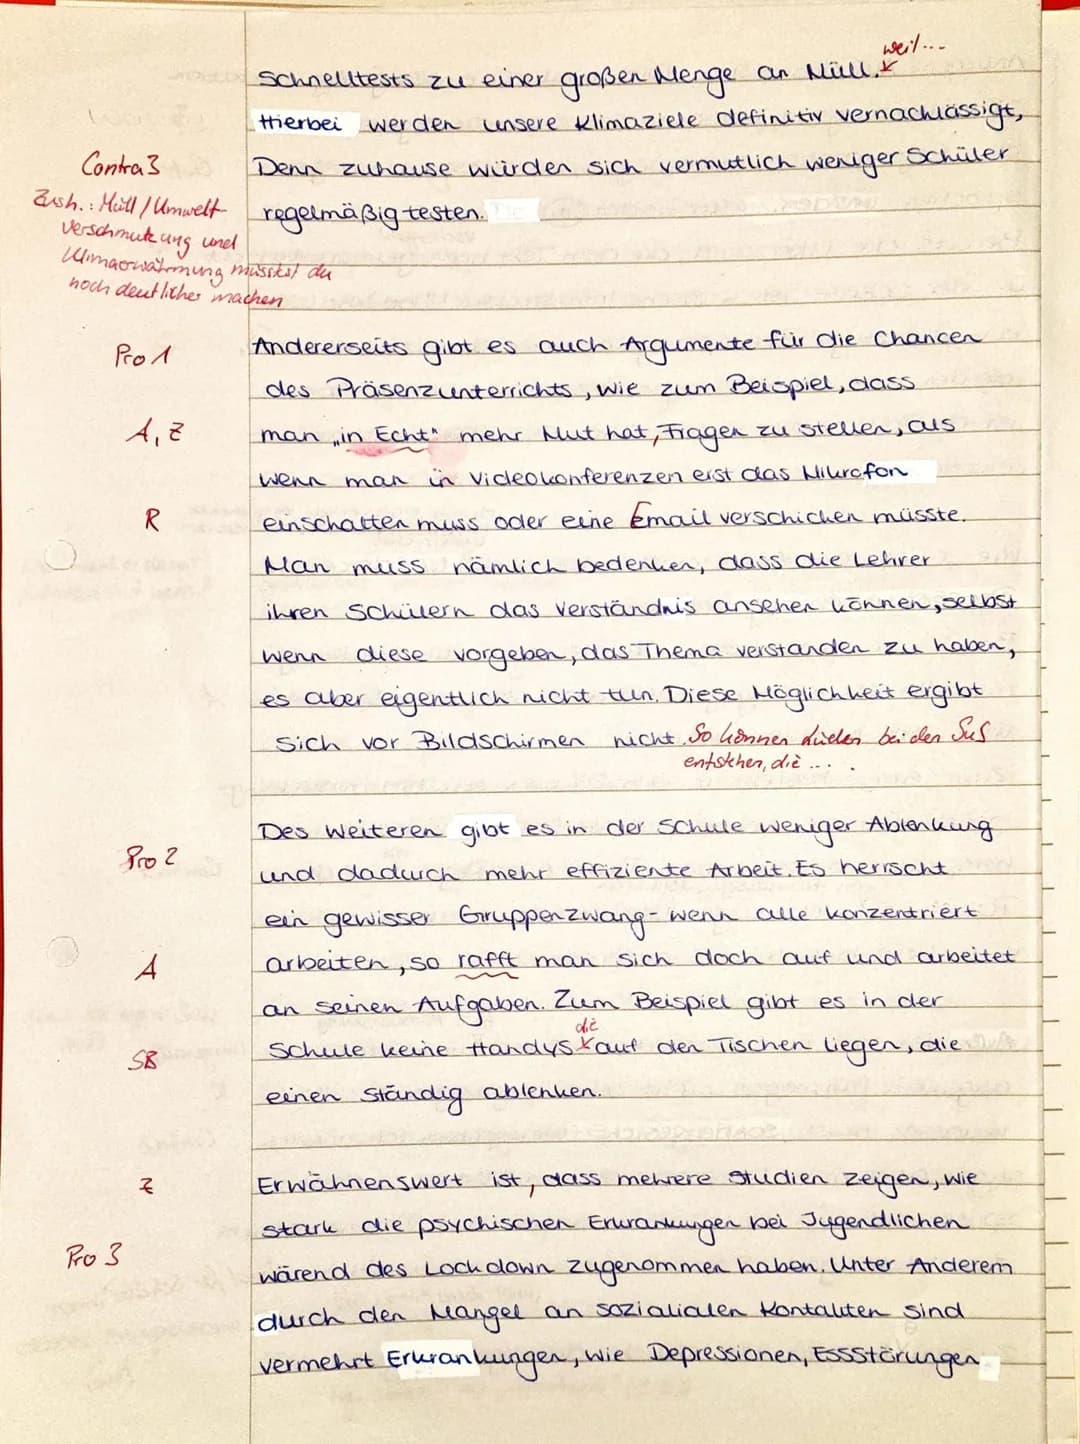 weil...
Schnelltests zu einer großen Menge an Müll.
Hierbei werden unsere Klimaziele definitiv vernachlässigt,
Contra 3
Denn zuhause würden sich vermutlich weniger Schüler
Zush.: Müll / Umwelt-
regelmäßig testen.
verschmutzung und
Klimaerwärmung müsstest du
noch deutlicher machen
Pro 1
Andererseits gibt es auch Argumente für die Chancen
des Präsenzunterrichts, wie zum Beispiel, dass
A, Z
man „in Echt" mehr Mut hat, Fragen zu stellen, als
wenn man in Videokonferenzen erst das Mikrofon
R
einschalten muss oder eine Email verschicken müsste.
Man muss nämlich bedenken, dass die Lehrer
ihren Schülern das Verständnis ansehen können, selbst
wenn diese vorgeben, das Thema verstanden zu haben,
es aber eigentlich nicht tun. Diese Möglichkeit ergibt
sich vor Bildschirmen nicht. So können Lücken bei den SuS
entstehen, die ...
Des Weiteren gibt es in der Schule weniger Ablenkung
Pro 2
und dadurch mehr effiziente Arbeit. Es herrscht
ein gewisser Gruppenzwang - wenn alle konzentriert
A
arbeiten, so rafft man sich doch auf und arbeitet
an seinen Aufgaben. Zum Beispiel gibt es in der
die
SB
Schule keine Handys auf den Tischen liegen, die
einen ständig ablenken.
Z
Erwähnenswert ist, dass mehrere Studien zeigen, wie
stark die psychischen Erkrankungen bei Jugendlichen
Pro 3
wärend des Lockdown zugenommen haben. Unter Anderem
durch den Mangel an sozialialen Kontakten sind
vermehrt Erkrankungen, wie Depressionen, Essstörungen